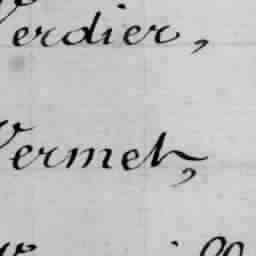 Verdier,
Vermet,